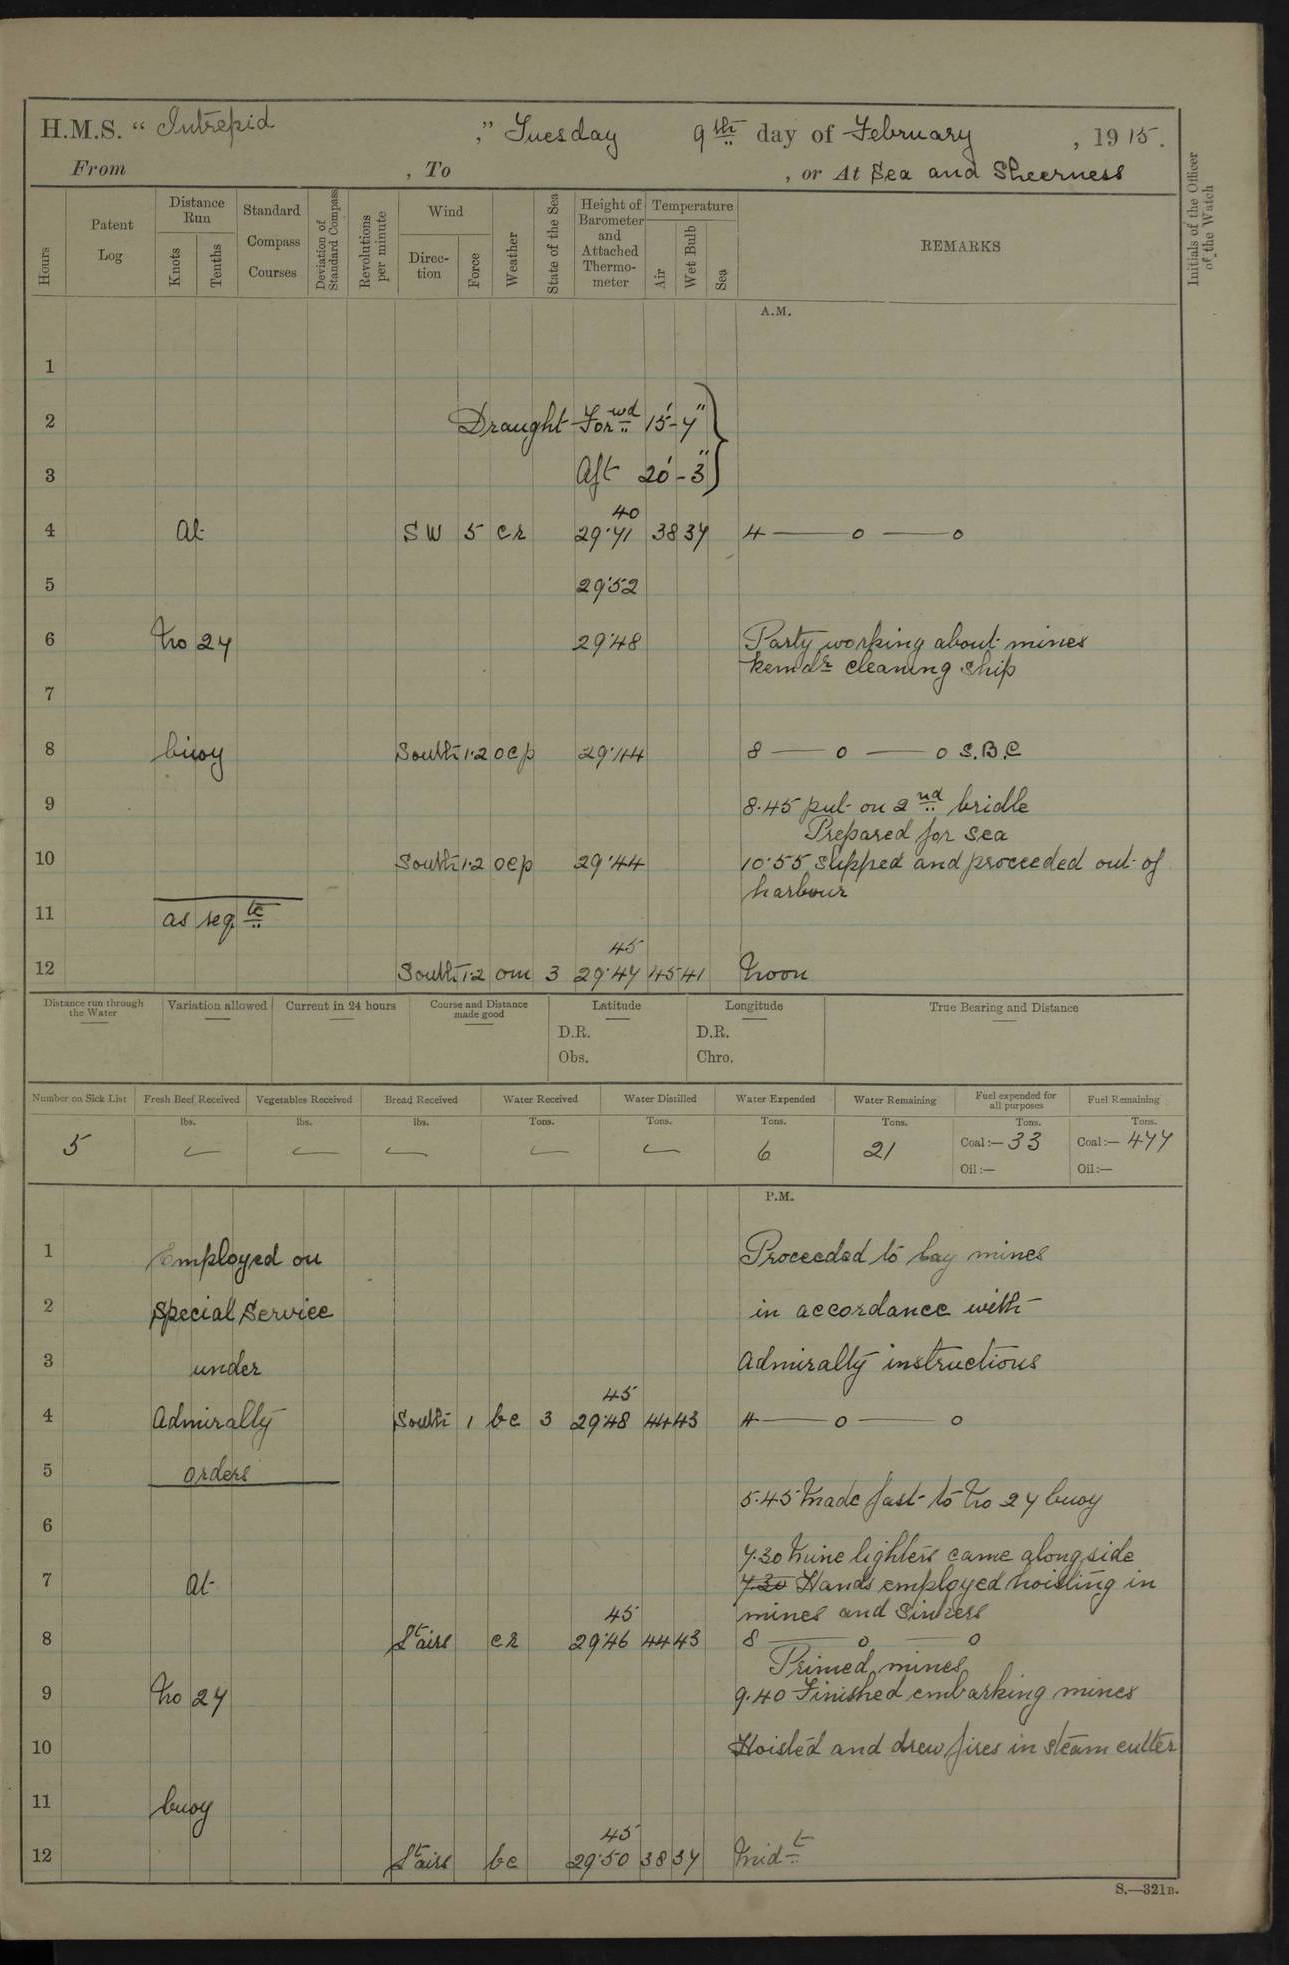 H.M.S. “ Intrepid ,” Tuesday 9th day of February , 1915.
From , To , or At Sea and Sheerness
Hours
Patent Log
Distance Run
Knots
Tenths
Standard Compass Courses
Deviation of Standard Compass
Revolutions per minute
Wind
Direc-tion
Force
Weather
State of the Sea
Height of Barometer and Attached Thermo-meter
Temperature
Air
Wet Bulb
Sea
REMARKS
Initials of the Officer of the Watch
A.M.
1
2 Draught Forwd 15'-7"
3 Aft 20'-3"
40
4 At SW 5 cr 29.71 38 37 4 — o — o
5 29.52
6 No 27 29.48 Party working about mines
Remdr cleaning ship
7
8 buoy South 1.2 ocp 29.44 8 — o — o S.B.C
9 8.45 put on 2nd bridle
Prepared for sea
10 South 1.2 ocp 29.44 10.55 slipped and proceeded out of
harbour
11 as reqte
45
12 South 1.2 om 3 29.47 45 41 Noon
Distance run through the Water
Variation allowed
Current in 24 hours
Course and Distance made good
Latitude
D.R.
Obs.
Longitude
D.R.
Chro.
True Bearing and Distance
Number on Sick List
Fresh Beef Received
Vegetables Received
Bread Received
Water Received
Water Distilled
Water Expended
Water Remaining
Fuel expended for all purposes
Fuel Remaining
lbs. lbs. lbs. Tons. Tons. Tons. Tons. Tons. Tons.
5 — — — — — 6 21 Coal :— 33 Coal :— 477
Oil :— Oil :—
P.M.
1 Employed on Proceeded to lay mines
2 Special Service in accordance with
3 under Admiralty instructions
45
4 Admiralty South 1 bc 3 29.48 44 43 4 — o — o
5 orders
5.45 Made fast to No 27 buoy
6
7.30 Mine lighters came alongside
7 At 7.30 Hands employed hoisting in
mines and Sinkers
45
8 Stairs cr 29.46 44 43 8 — o — o
Primed mines
9 No 27 9.40 Finished embarking mines
10 Hoisted and drew fires in steam cutter
11 buoy
45
12 Stairs bc 29.50 38 37 Midt
S.—321B.